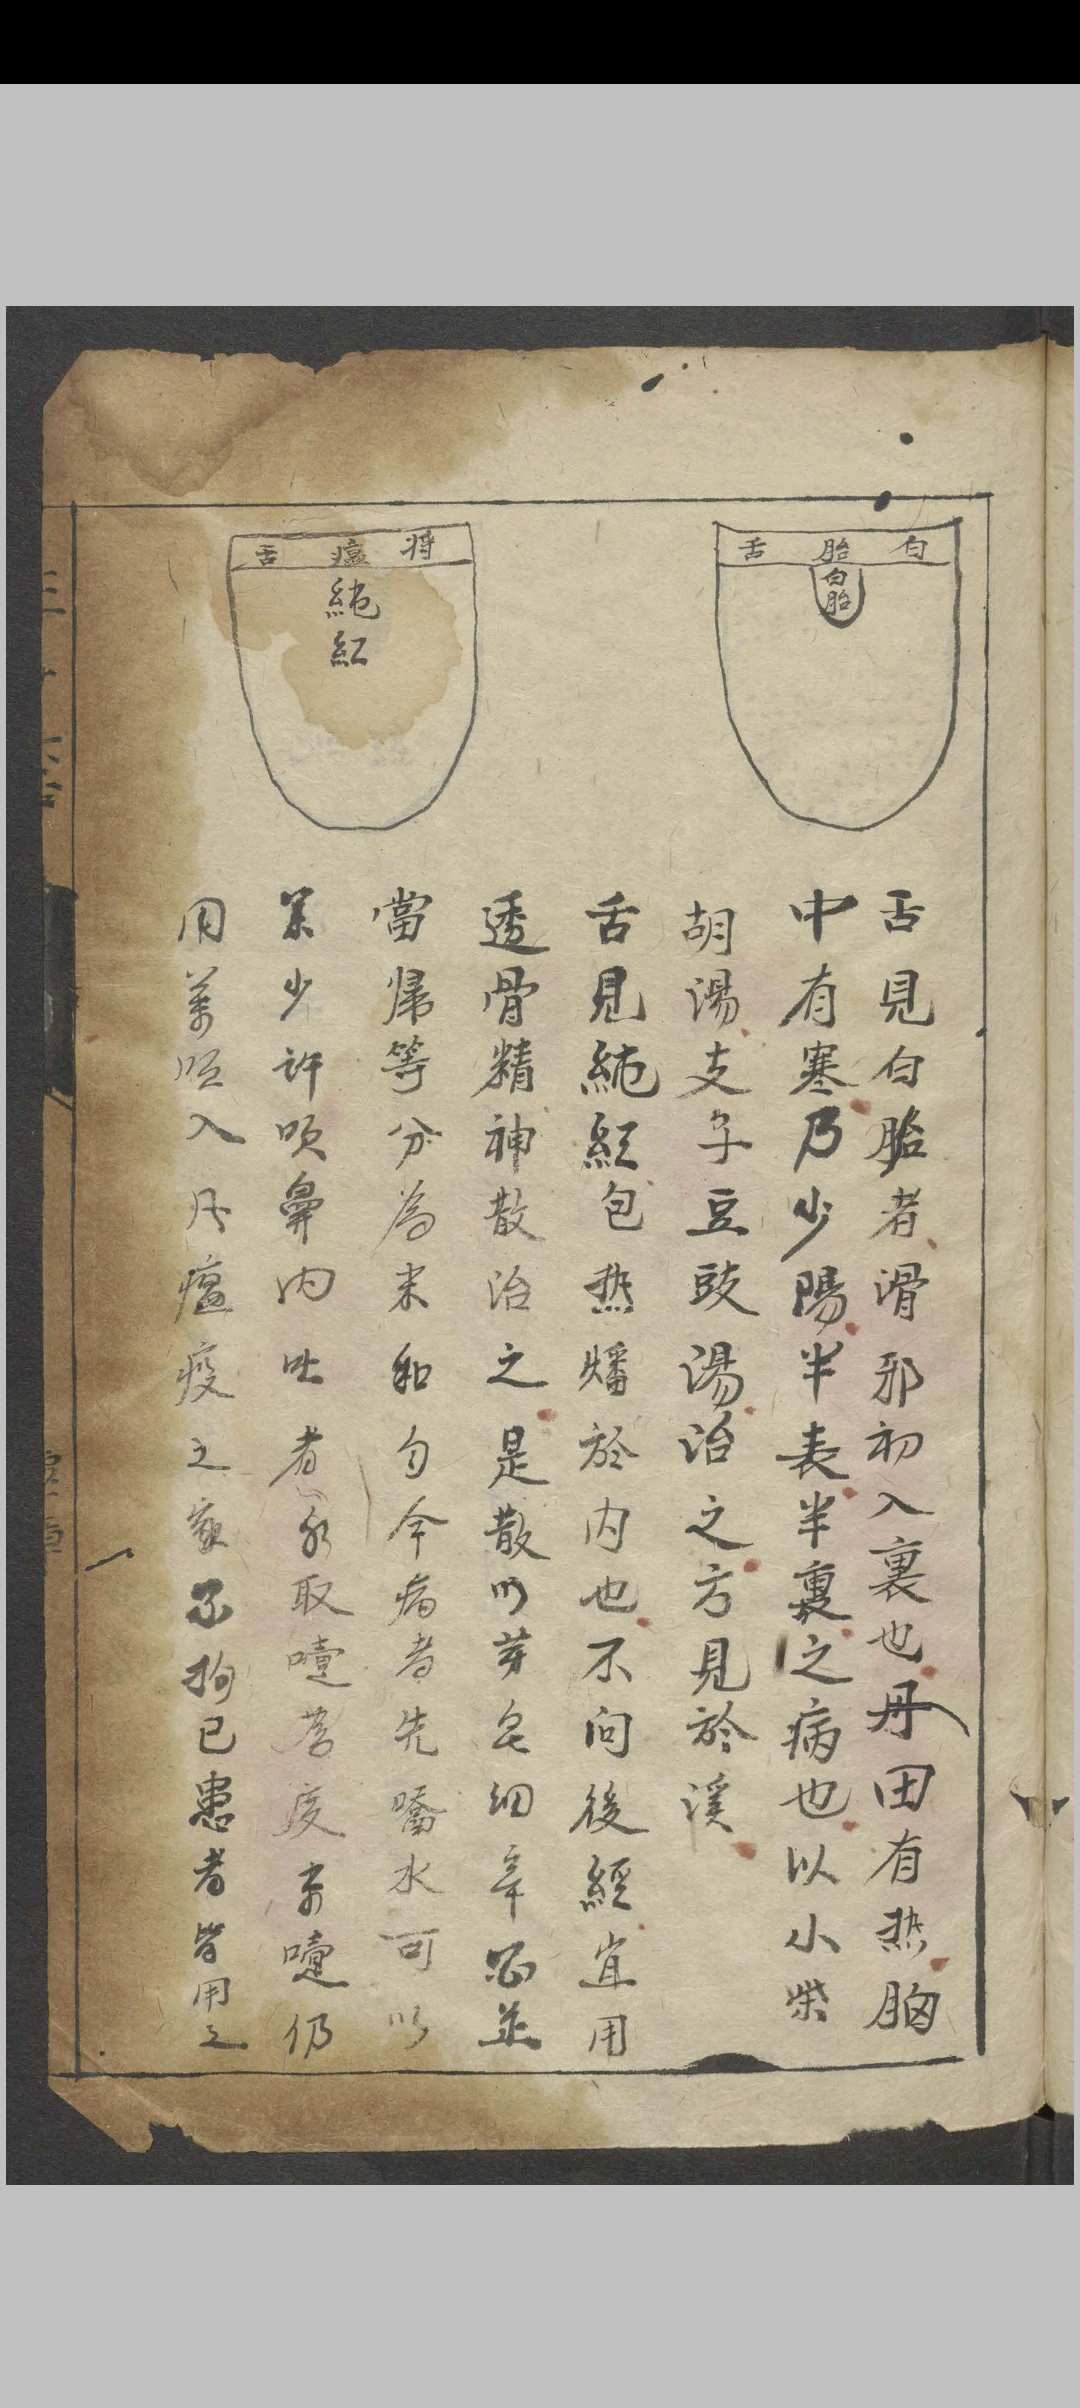 白胎舌
白胎
將瘟舌
純紅
舌見白胎者滑邪初入裏也丹田有热胸
中有寒乃少陽半表半裏之病也以小柴
胡湯支子豆豉湯治之方見於溪
舌見純紅色热燔於内也不问後經宜用
透骨精神散治之是散以芽皂细辛
當歸等分為末和匀令病者先噙水可以
少许鼻内吐者取嚏嚏仍
用入瘟疫之家不拘已患者皆用之